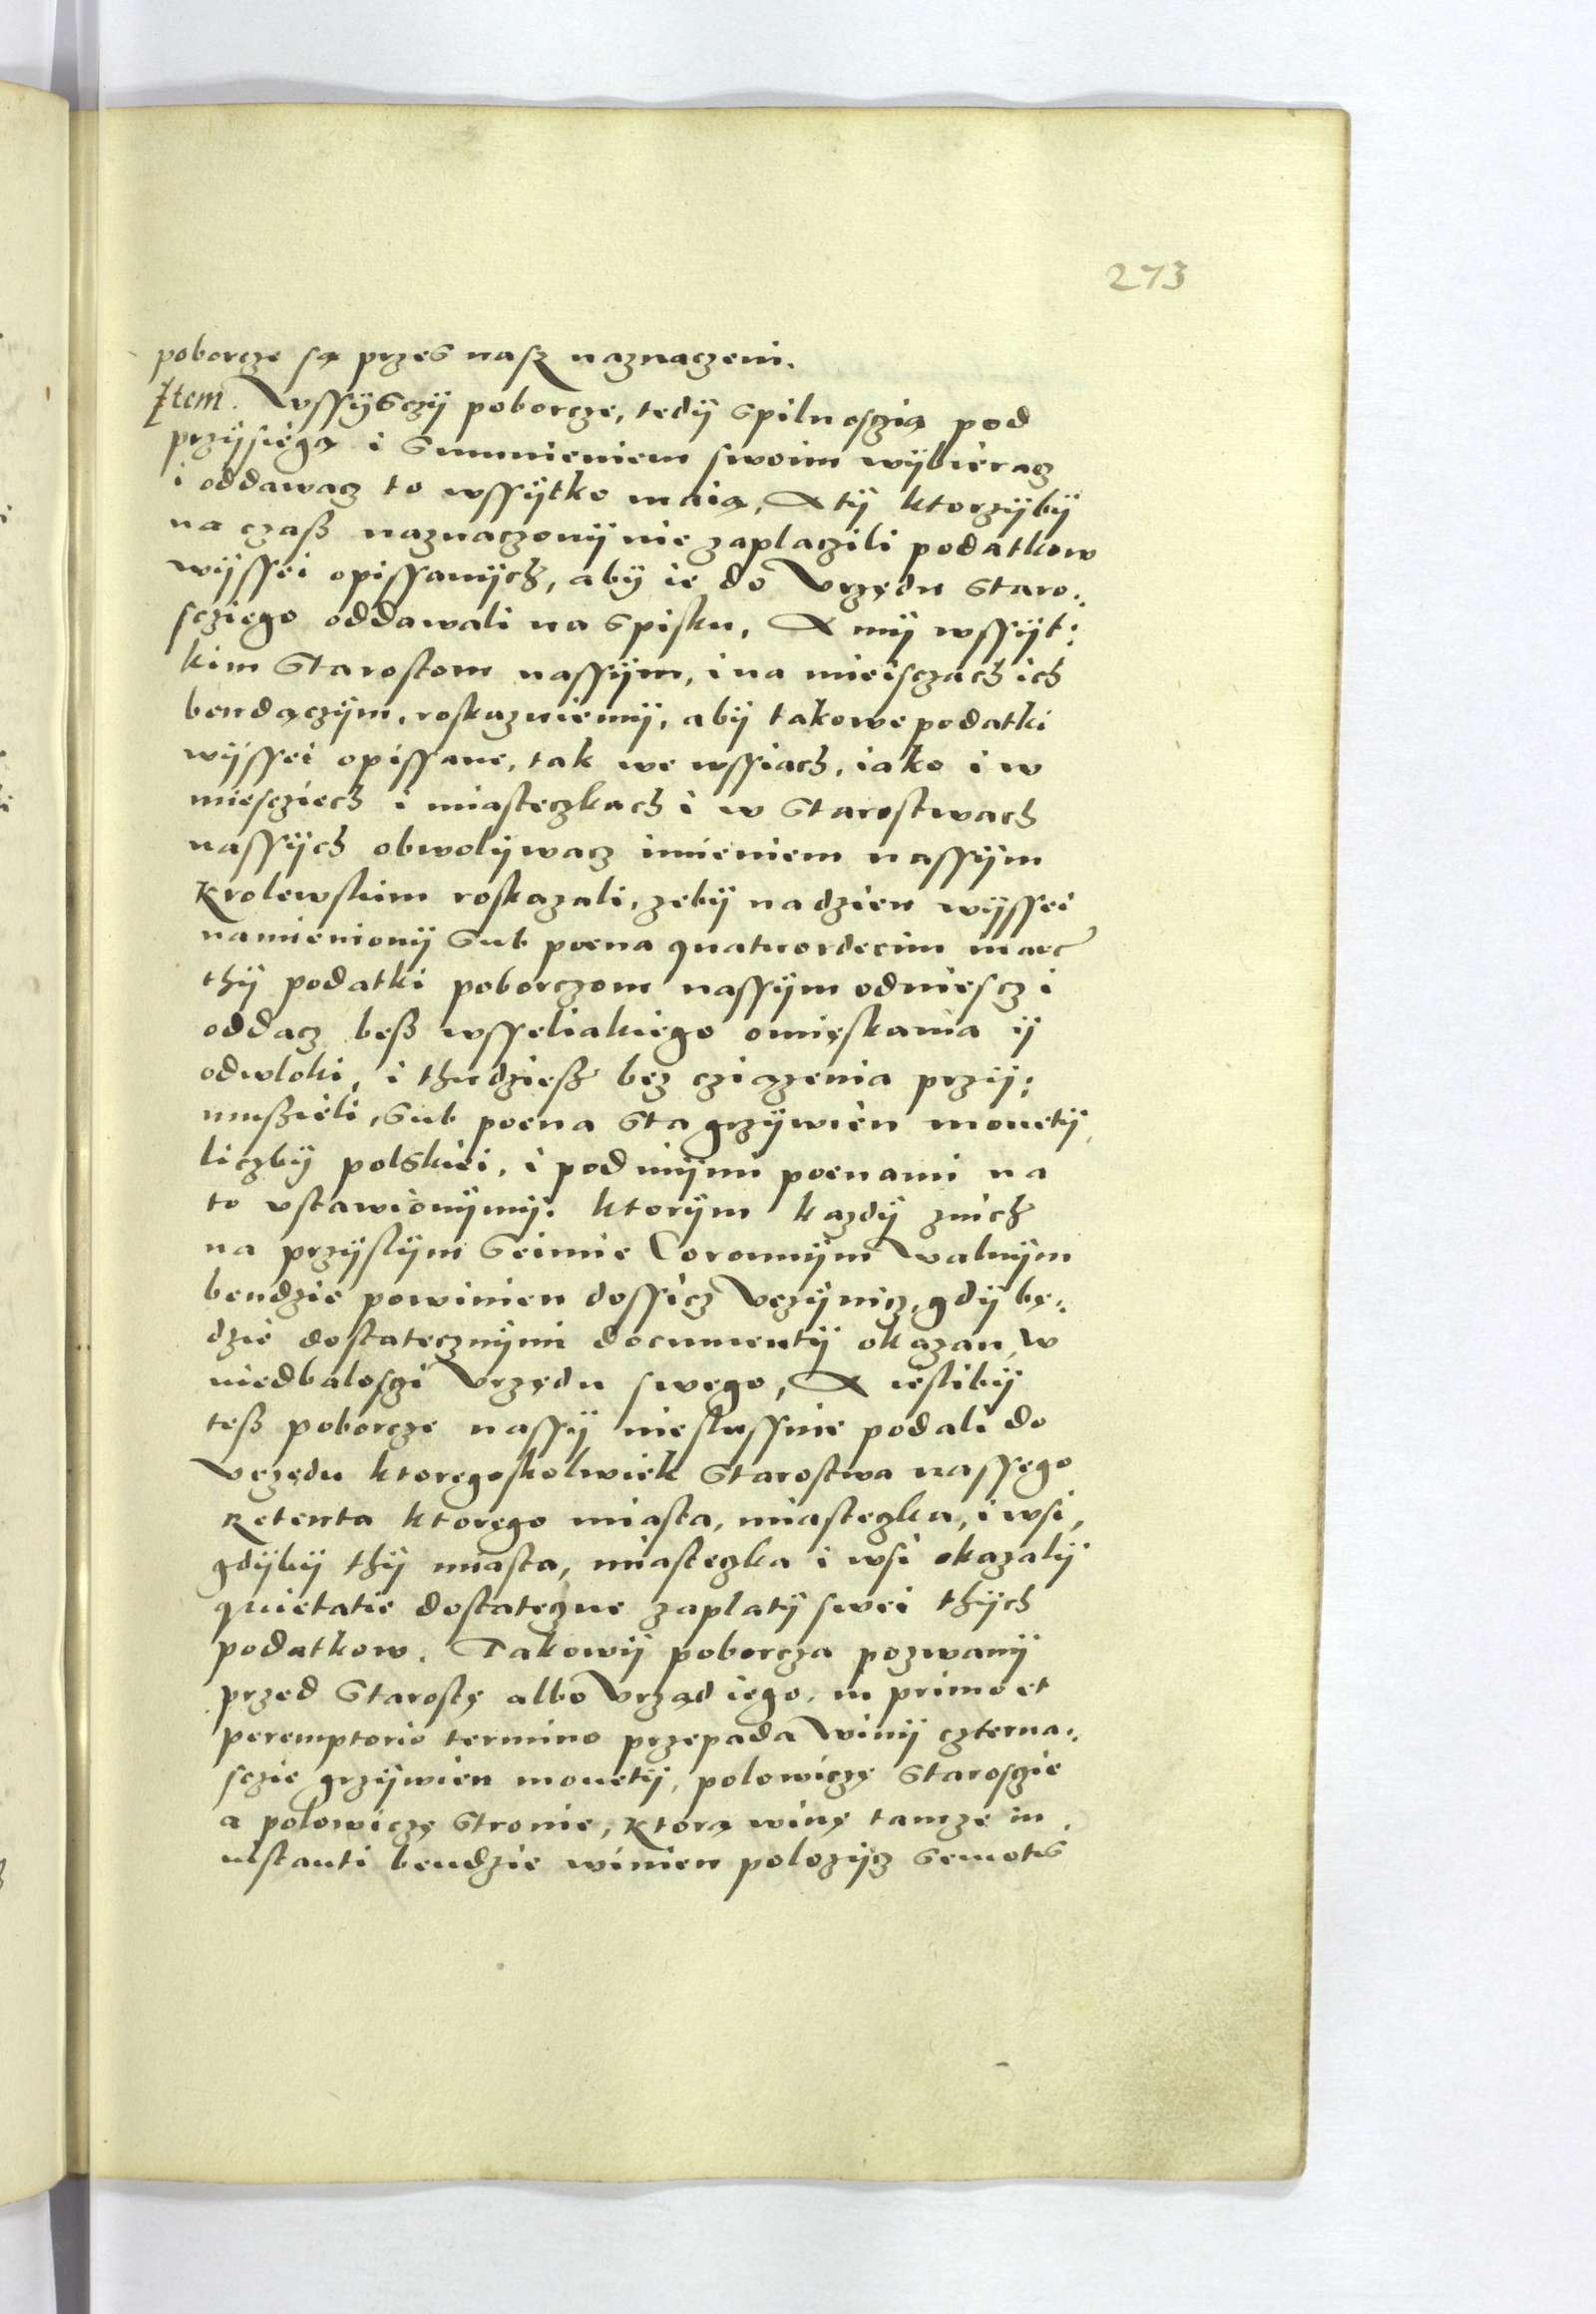 273
poborcze są przes nasz naznaczeni.
Item. Wssÿsczÿ poborcze, tedÿ spilnosczią pod
przÿsiegą i sumnieniem swoim wÿbieracz
i oddawacz to wssÿtko maią, A tÿ ktorzÿbÿ
na czaß naznaczonÿ nie zaplaczili podatkow
wÿssei opissanÿch, abÿ ie do Vrzędu staro:
sciego oddawali na spisku, A mÿ wssÿt:
kim Starostom nassÿm, i na mieisczach ich
bendączÿm, roskazuiemÿ, abÿ takowe podatki
wÿssei opissane, tak we wssiach, iako i w
miesciech i miasteczkach i w starostwach
nassÿch obwolÿwacz imieniem nassÿm
Krolewskim roskazali, zebÿ na dzien wÿssei
namienionÿ sub poena quatuordecim marc
thÿ podatki poborczom nassÿm odniescz i
oddacz beß wsseliakiego omięskania ÿ
odwloki, i thudzieß bez cziązenia przÿ:
mußieli, sub poena sta grzÿwien monetÿ,
liczbÿ polskiei, i pod inÿmi poenami na
to vstawionÿmÿ. ktorÿm kazdÿ znich
na przÿslÿm Seimie Coronnÿm Walnÿm
bendzie powinien dossicz Vczÿnicz, gdÿ bę:
dzie dostatecznÿmi documentÿ okazan, w
niedbalosci Vrzędu swego, A iestlibÿ
teß poborcze nassÿ nieslussnie podali do
Vrzędu ktoregoskolwiek Starostwa nassego
Retenta ktorego miasta, miasteczka, i wsi,
gdÿbÿ thÿ miasta, miasteczka i wsi okazalÿ
quietatie dostateczne zaplatÿ swei thÿch
podatkow. Takowÿ poborcza pozwanÿ
przed Starostę albo Vrząd iego, in primo et
peremptorio termino przepada Winÿ czterna:
scie grzÿwien monetÿ, polowiczę Staroscie
a polowiczę Stronie, ktorą winę tamze in
instanti bendzie winien polozÿcz semotis